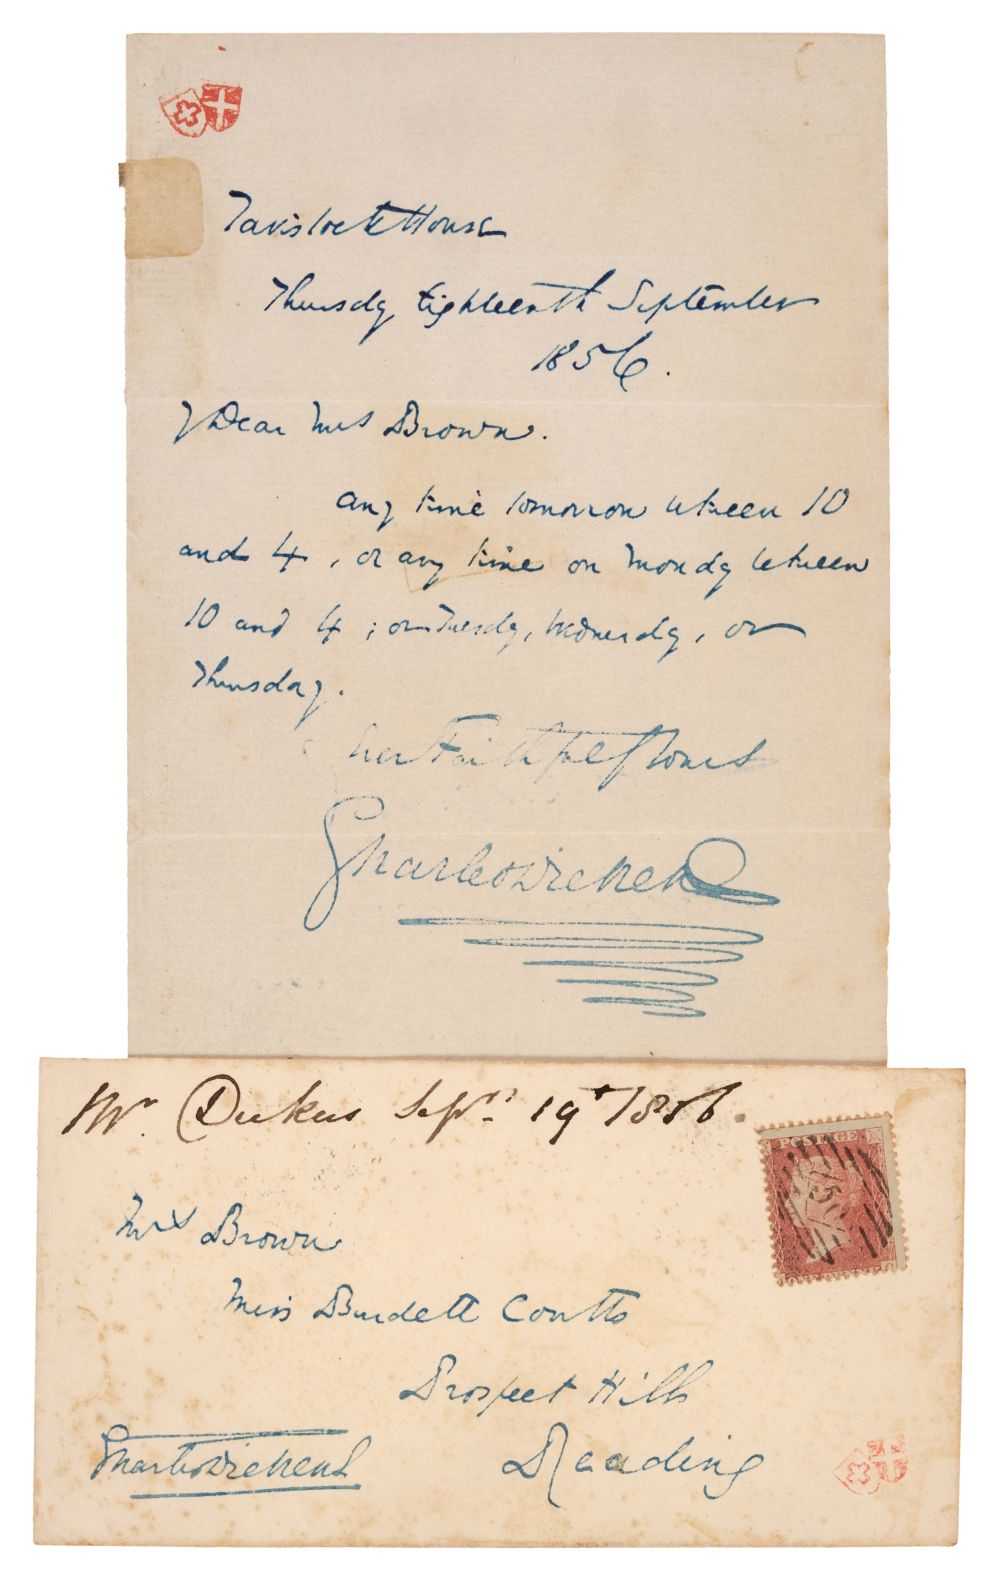 Tavistock House
Thursday Eighteenth September
1856.
Dear Mrs Brown.
Any time tomorrow between 10
and 4, or any time on Monday between
10 and 4; or Tuesday, Wednesday, or
Thursday.
Very Faithfully Yours
Charles Dickens
Mr. Dickens Sepr. 19th 1856.
POSTAGE
ONE PENNY
75
Mrs Brown
Miss Burdett Coutts
Prospect Hill
Reading
Charles Dickens